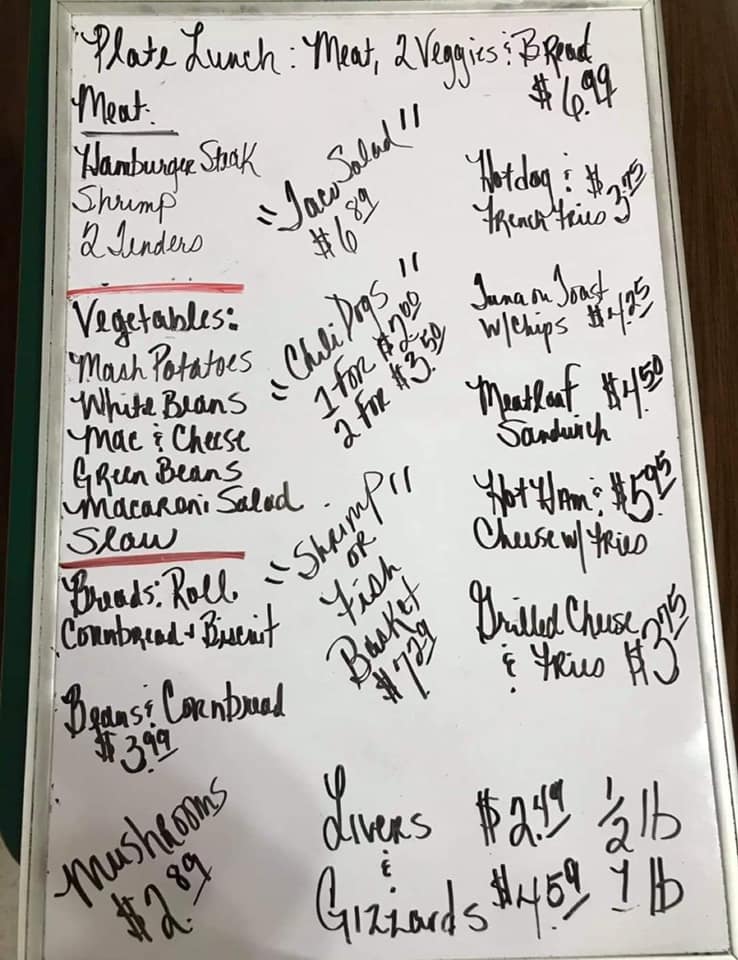 "Plate Lunch: Meat, 2 Veggies & Bread
$6.99
Meat:
Hamburger Steak
Shrimp
2 Tenders
Vegetables:
Mash Potatoes
White Beans
Mac & Cheese
Green Beans
Macaroni Salad
Slaw
Breads: Roll
Cornbread + Biscuit
Beans & Cornbread
$3.99
Mushrooms
$2.89
"Taco Salad"
$6.89
"Chili Dogs"
1 For $2.00
2 For $3.50
"Shrimp"
or
Fish
Basket
$7.29
Hotdog & $3.75
French Fries
Tuna on Toast
w/Chips $4.25
Meatloaf $4.50
Sandwich
Hot Ham & $5.95
Cheese w/ Fries
Grilled Cheese
& Fries $3.75
Livers $2.49 1/2 lb
&
Gizzards $4.59 1 lb